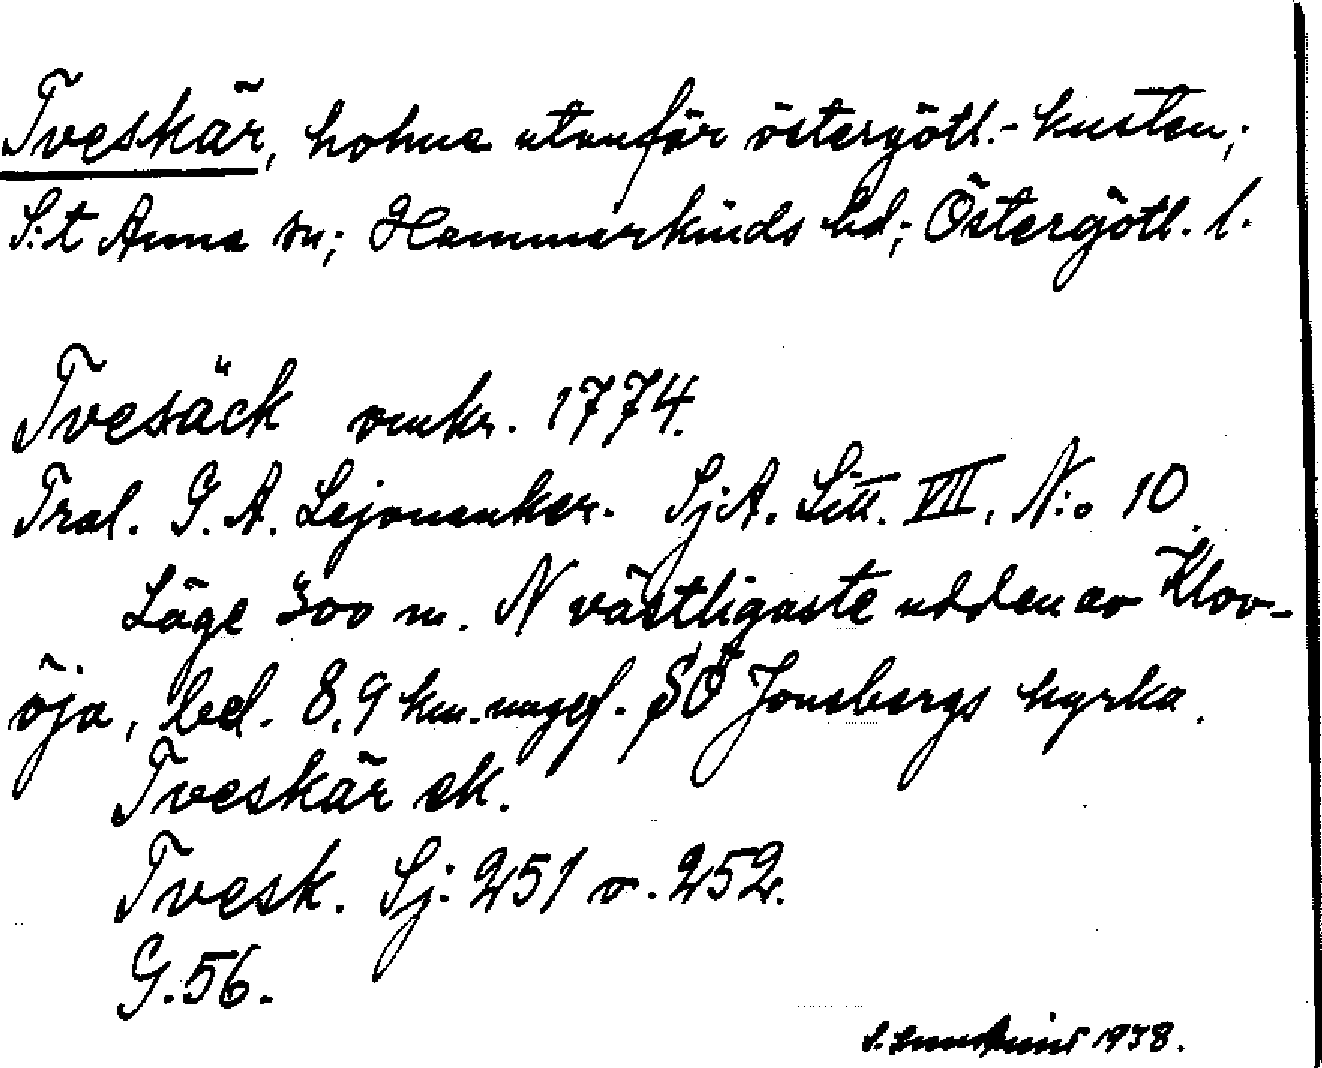 Tveskär, holme utanför östergötl.-kusten;
S:t Anna sn; Hammarkinds hd; Östergötl. l.
Tvesäck omkr. 1774.
Tral. G. A. Lejonanker. SjA. Litt. VIII, N:o 10.
Läge 300 m. N västligaste udden av Klov-
öja, bel. 8,9 km. ungef. SO Jonsbergs kyrka.
Tveskär ek.
Tvesk. Sj: 251 o. 252.
G.56.
1938.